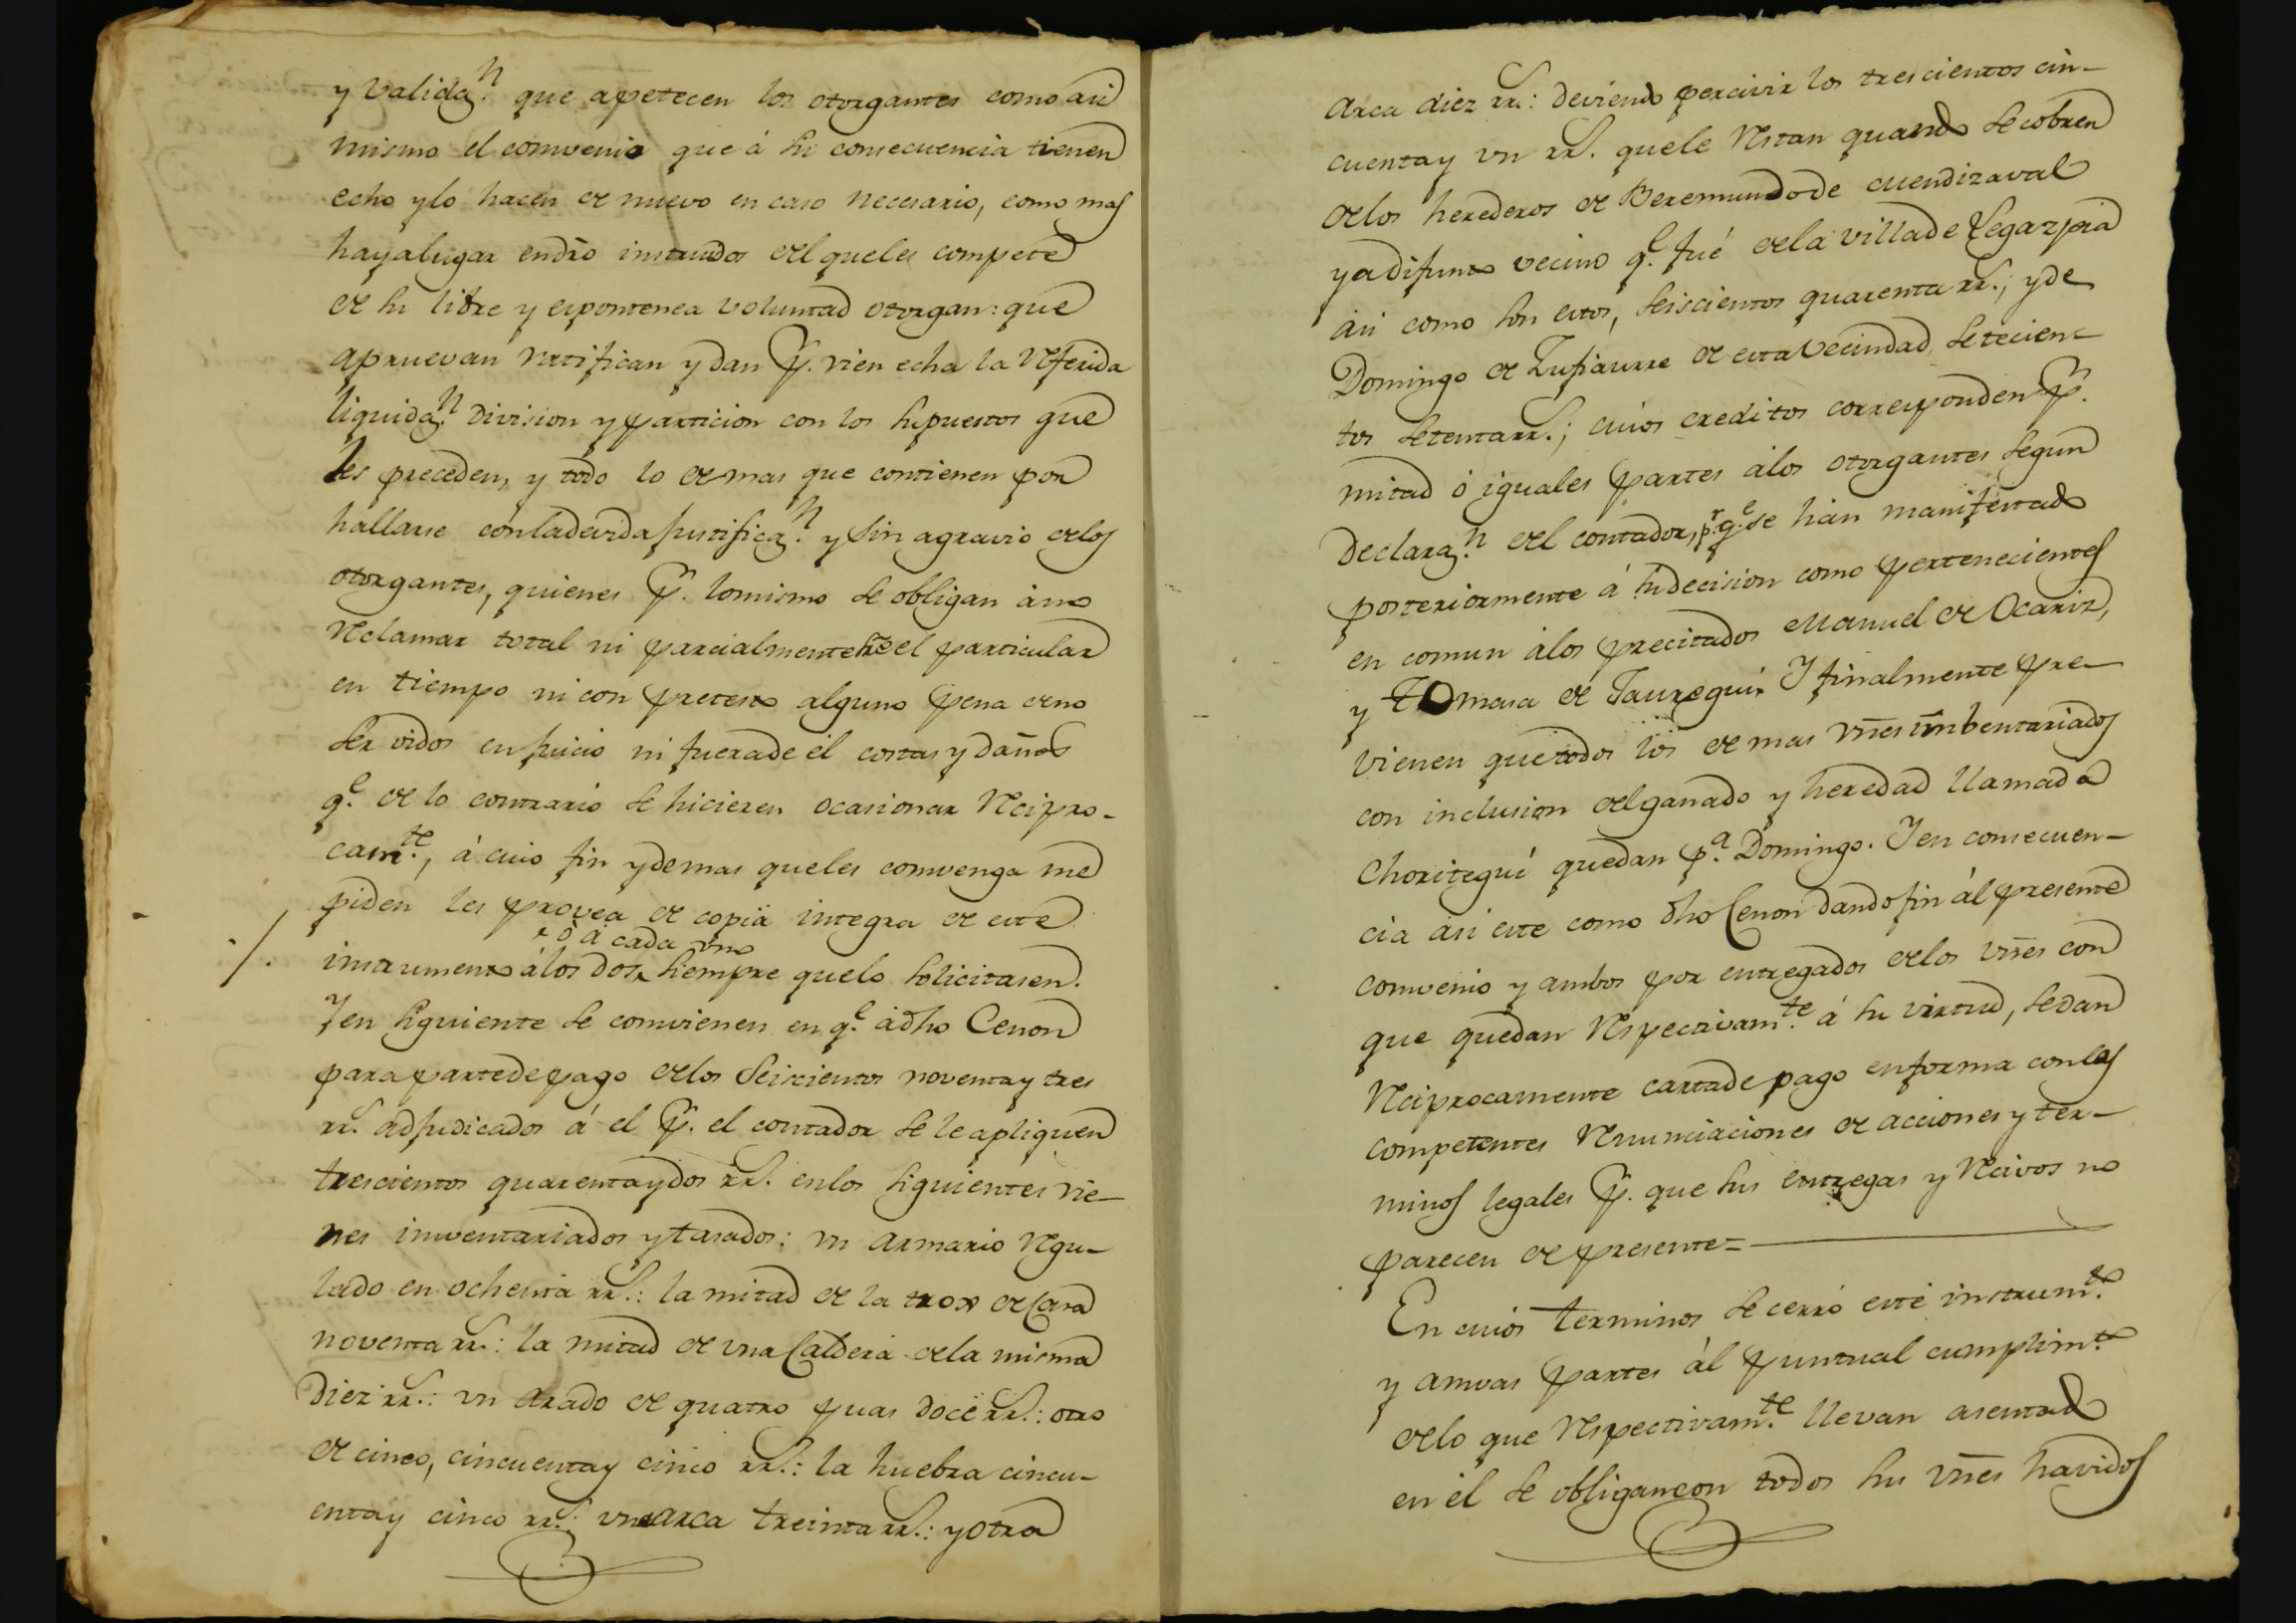 y Validan. que apetecen los otorgantes como asi
mismo el comvenio que á su consecuencia tienen
echo y lo hacen de nuevo en caso necesario, como mas
haya lugar en dro instruidos del que les compete
de su libre y espontenea voluntad otorgan: que
apruevan ratifican y dan pr. vien echa la referida
liquidan. Division y particion con los supuestos que
les preceden, y todo lo demas que contienen por
hallarse con la devida justifican. y sin agravio de los
otorgantes, quienes pr. lo mismo se obligan á no
reclamar total ni parcialmente sre el particular
en tiempo ni con pretesto alguno pena de no
ser oidos en juicio ni fuera de él costas y daños
qe. de lo contrario se hicieren ocasionar recipro-
camte., á cuio fin y demas que les comvenga me
piden les provea de copia integra de este
ô á cada uno
instrumento á los dos siempre que lo solicitasen.
Y en siguiente se comvienen en qe. á dho Cenon
para parte de pago de los Seiscientos noventa y tres
rrs. adjudicados á el pr. el contador se le apliquen
trescientos quarenta y dos rrs. en los siguientes vie-
nes imventariados y tasados: un armario regu-
lado en ochenta rrs.: la mitad de la trox de Casa
noventa rrs.: la mitad de una Caldera de la misma
Diez rrs.: un arado de quatro puas doce rrs.: otro
de cinco, cincuenta y cinco rrs.: la huebra cincu-
enta y cinco rrs.: un arca treinta rrs.: y otra
arca diez rrs.: deviendo percivir los trescientos cin-
cuenta y un rrs. que le restan quando se cobren
de los herederos de Beremundo de Cuendizaval
ya difunto vecino qe. fué de la villa de Legazpia
asi como son estos, seiscientos quarenta rrs.; y de
Domingo de Lusiaurre de esta Vecindad setecien-
tos setenta rrs.; cuios creditos corresponden pr.
mitad ó iguales partes á los otorgantes segun
Declaran. del contador, pr. qe. se han manifestado
posteriormente á su decision como pertenecientes
en comun á los precitados Manuel de Ocariz,
y Tomasa de Jauregui. Y finalmente pre-
vienen que todos los demas vnes imbentariados
con inclusion del ganado y heredad llamada
Choritegui quedan pa. Domingo. Y en consecuen-
cia asi este como dho Cenon dando fin ál presente
comvenio y ambos por entregados de los vnes con
que quedan respectivamte. á su virtud, se dan
reciprocamente carta de pago en forma con las
competentes renunciaciones de acciones y ter-
minos legales pr. que sus entregas y recivos no
parecen de presente=
En cuios terminos se cerró este instrumto.
y amvas partes ál puntual cumplimto.
de lo que respectivamte. llevan asentado
en él se obligan con todos sus vnes havidos